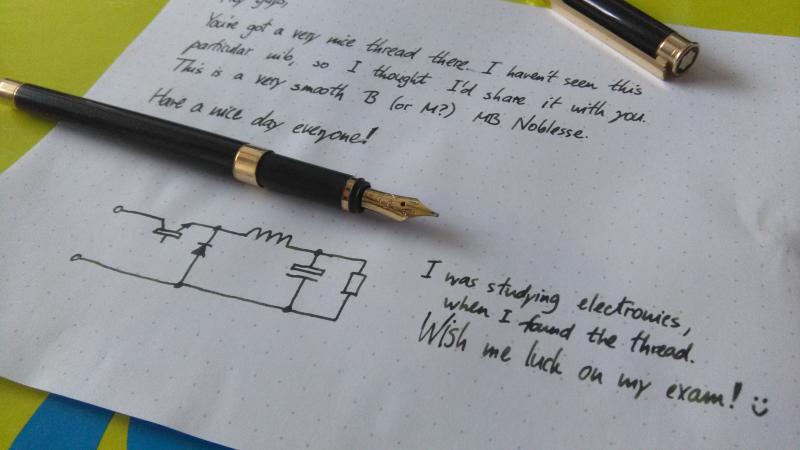 Hey guys,
You've got a very nice thread there. I haven't seen this
particular nib, so I thought I'd share it with you.
This is a very smooth B (or M?) MB Noblesse.
Have a nice day everyone!
I was studying electronics,
when I found the thread.
Wish me luck on my exam! :)